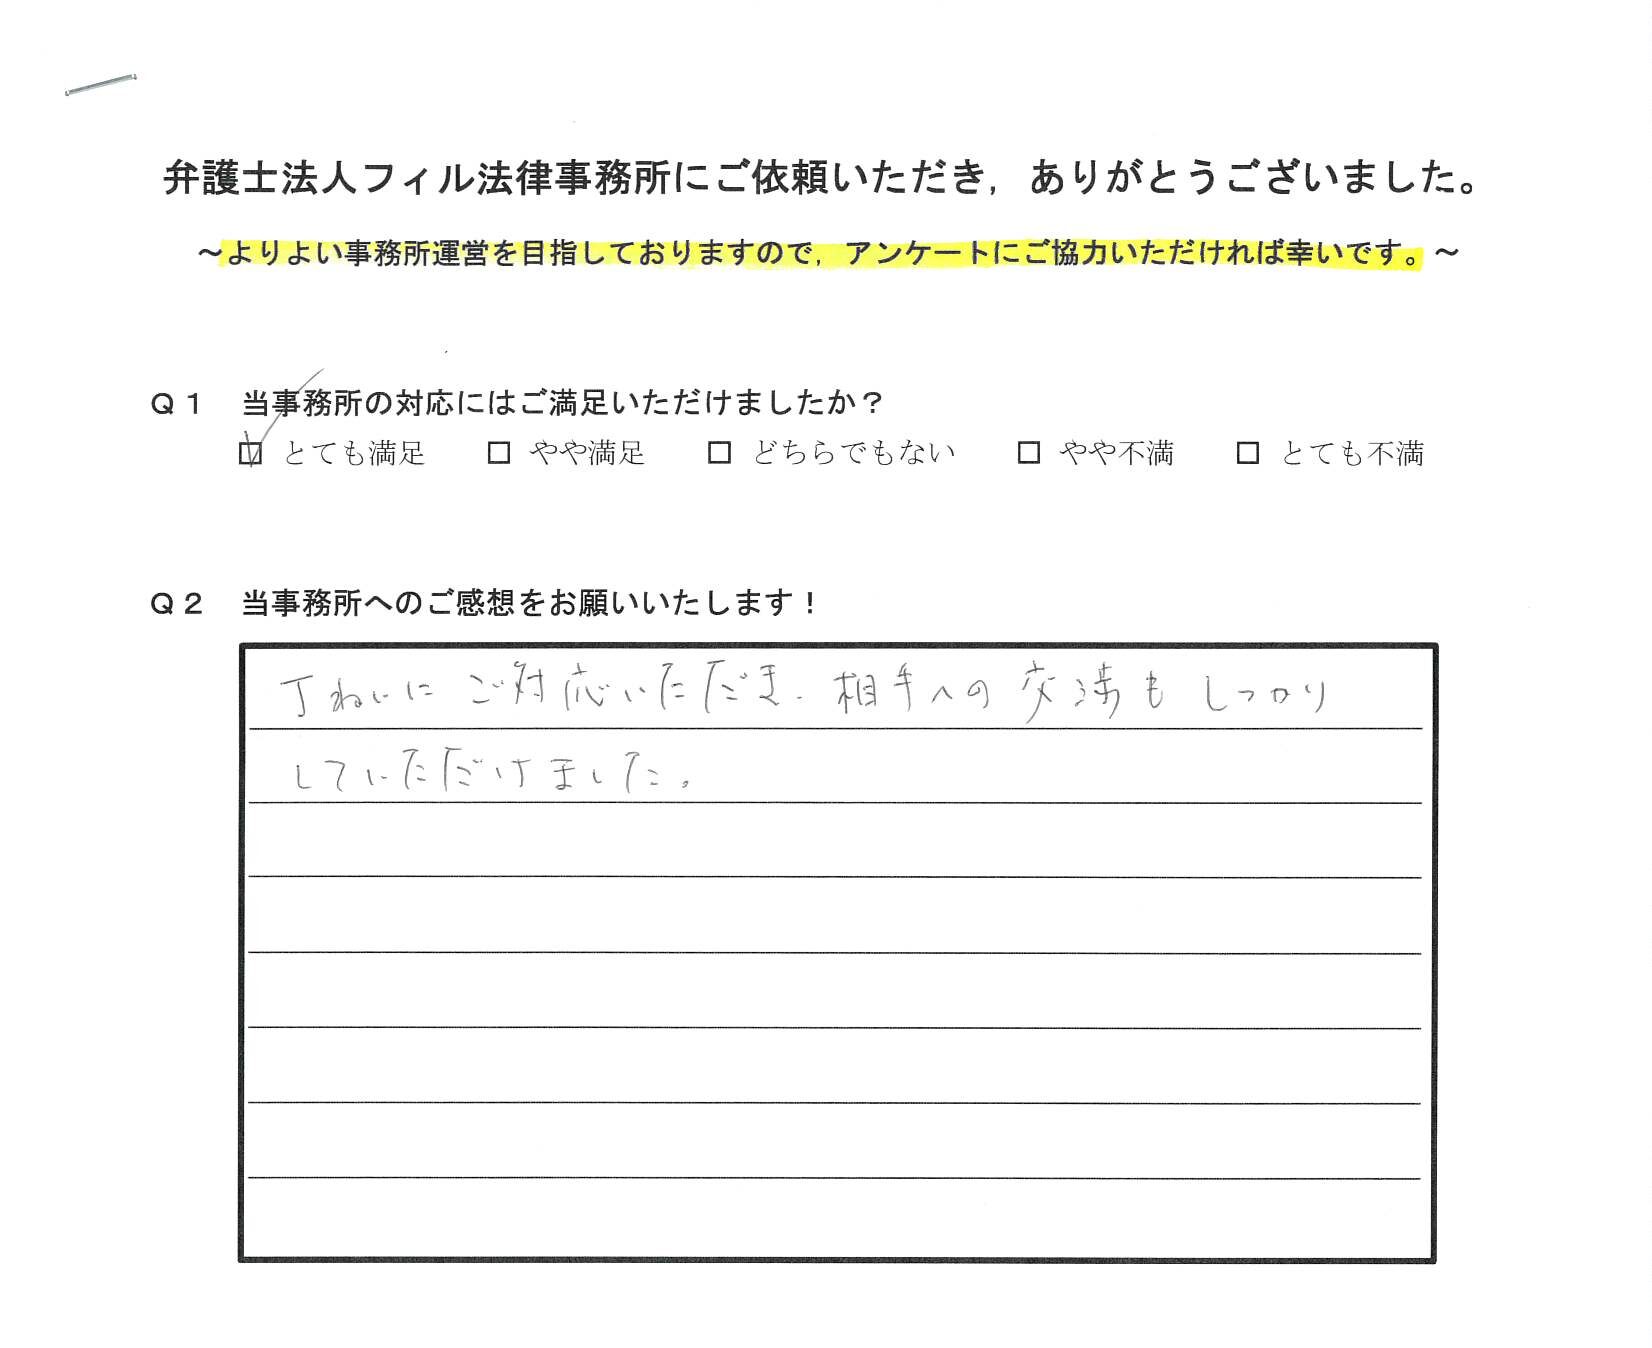 弁護士法人フィル法律事務所にご依頼いただき，ありがとうございました。
～よりよい事務所運営を目指しておりますので，アンケートにご協力いただければ幸いです。～
Ｑ１　当事務所の対応にはご満足いただけましたか？
☑ とても満足　□ やや満足　□ どちらでもない　□ やや不満　□ とても不満
Ｑ２　当事務所へのご感想をお願いいたします！
丁ねいにご対応いただき、相手への交渉もしっかり
していただけました。